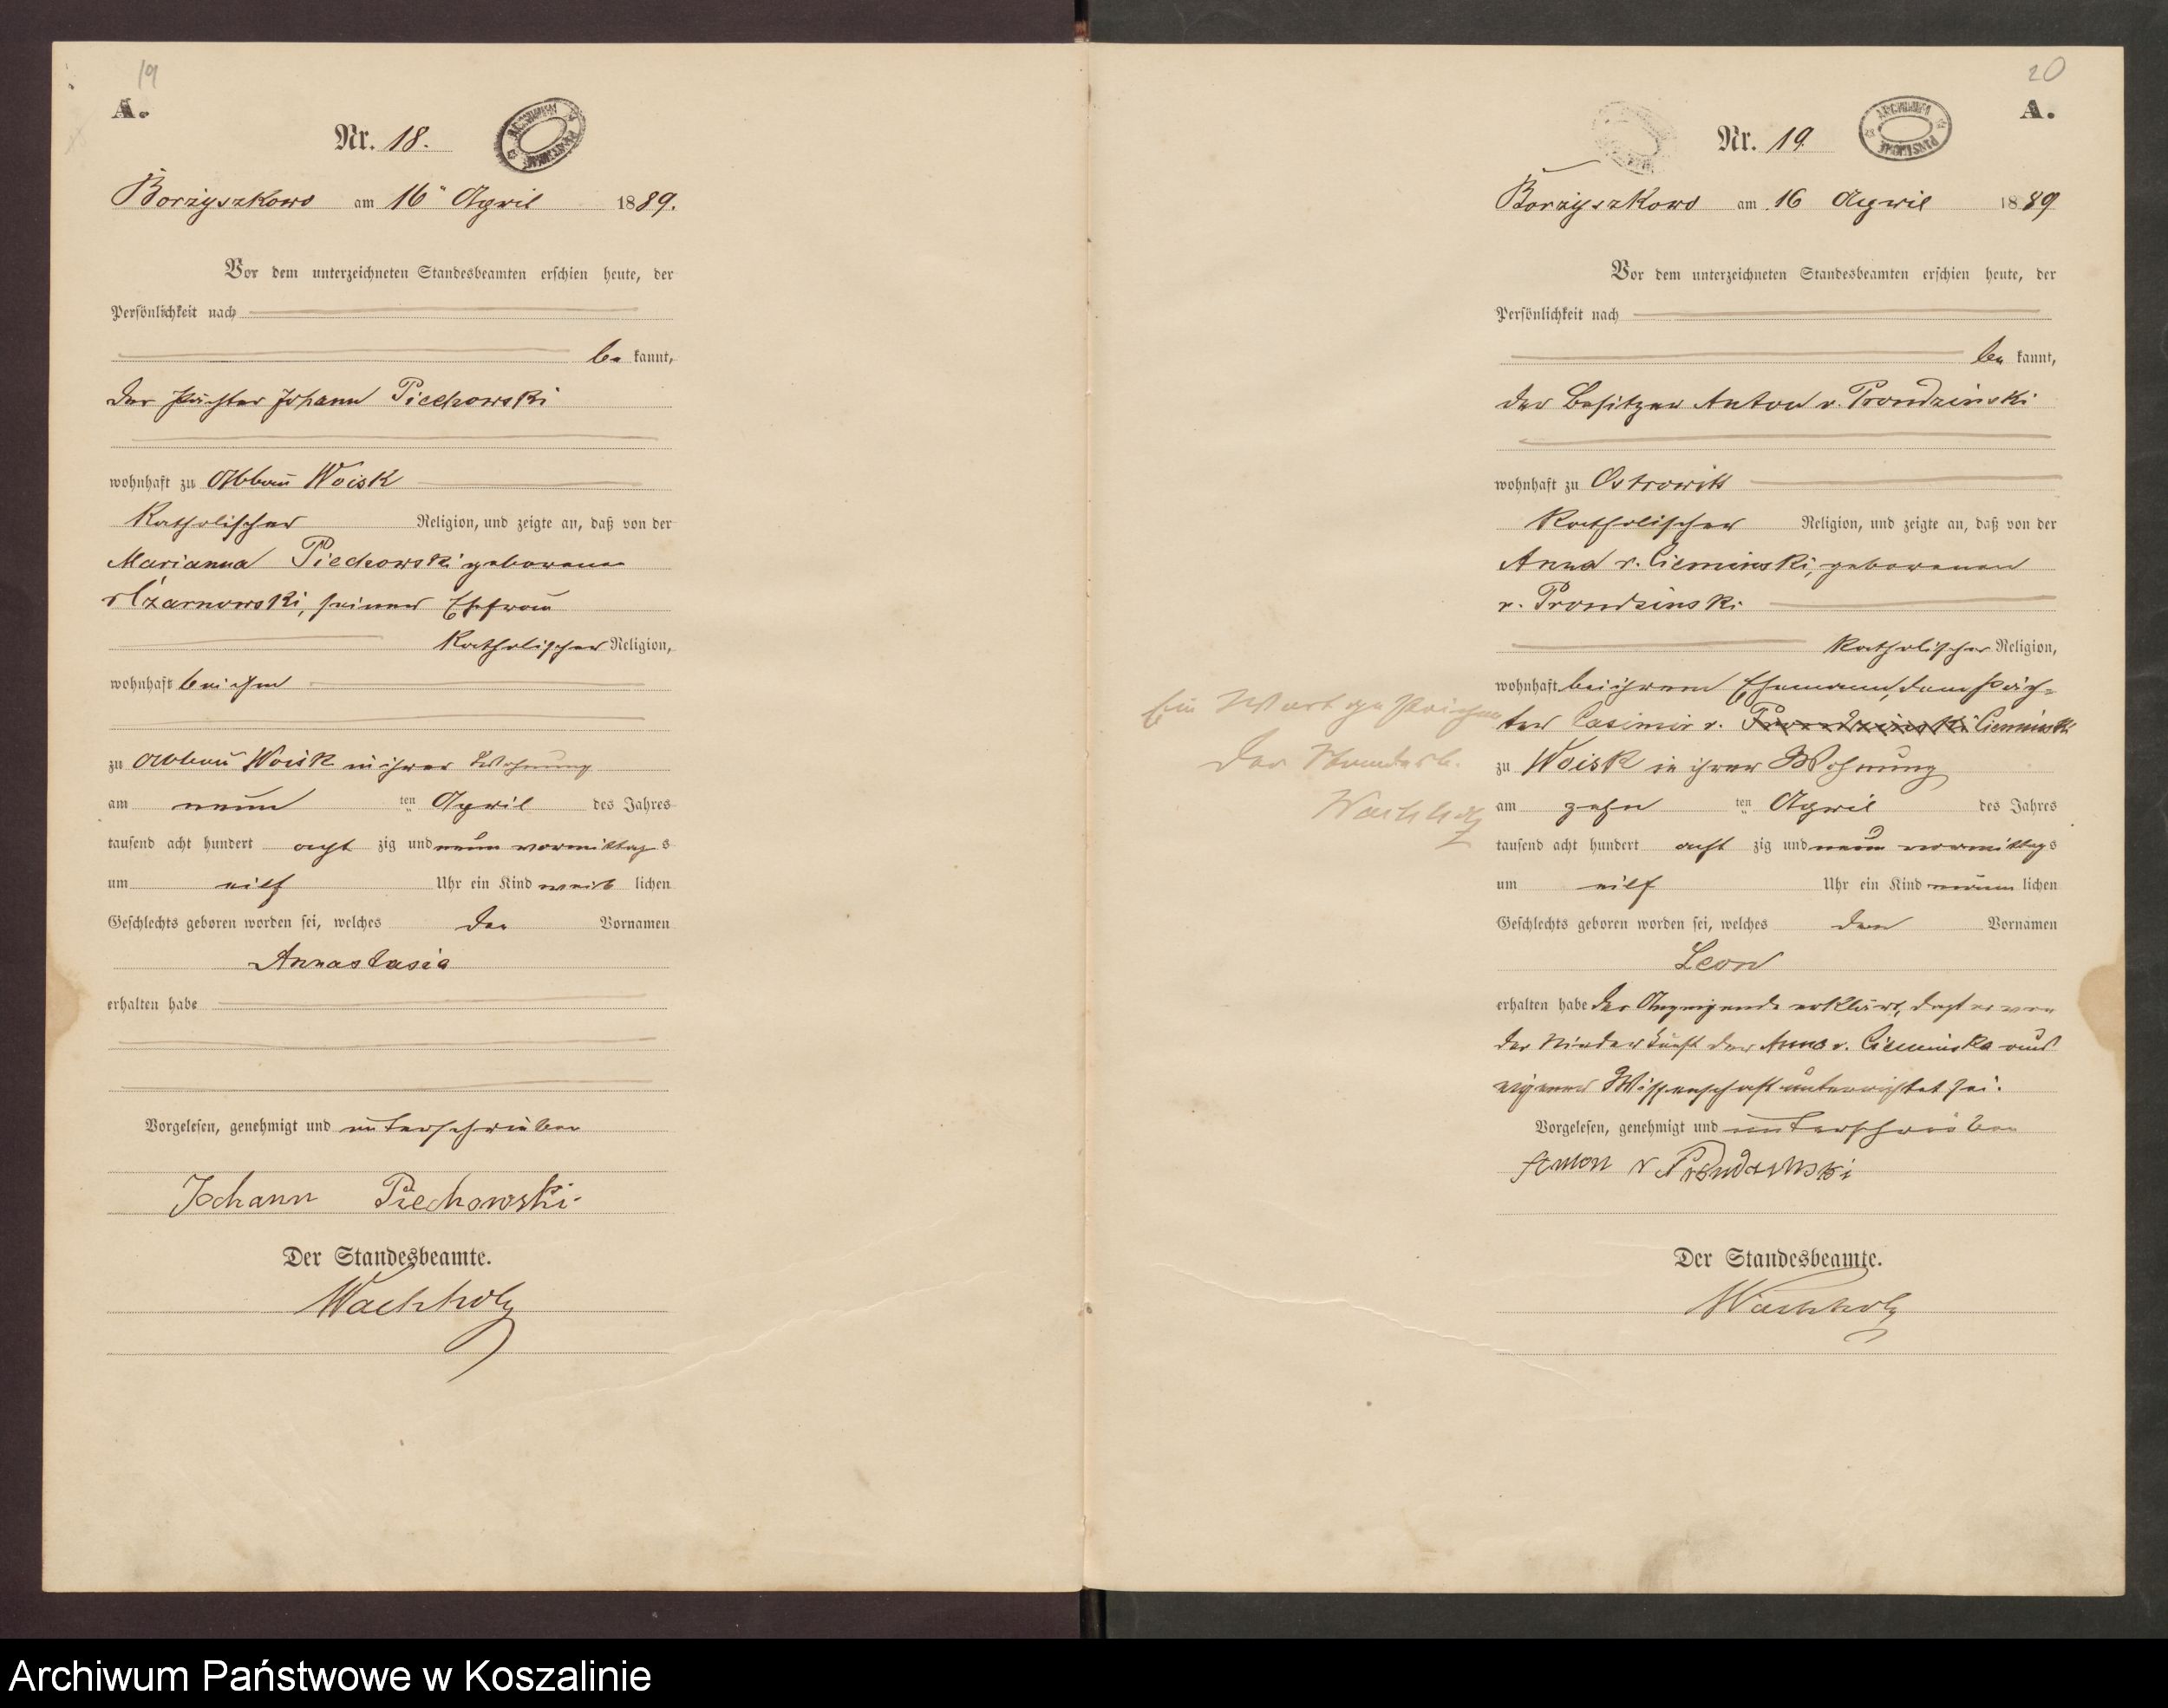 19
A.
Nr. 18.
ARCHIWUM PAŃSTWOWE
Borzyszkowo am 16 April 1889.
Vor dem unterzeichneten Standesbeamten erschien heute, der
Persönlichkeit nach
be kannt,
der Pächter Johann Piechowski
wohnhaft zu Abbau Woisk
katholischer Religion, und zeigte an, daß von der
Marianna Piechowski geborenen
v Czarnowski, seiner Ehefrau
katholischer Religion,
wohnhaft bei ihm
zu Abbau Woisk in ihrer Wohnung
am neun ten April des Jahres
tausend acht hundert acht zig und neun vormittag s
um eilf Uhr ein Kind weib lichen
Geschlechts geboren worden sei, welches den Vornamen
Annastasia
erhalten habe
Vorgelesen, genehmigt und unterschrieben
Johann Piechowski
Der Standesbeamte.
Wachholz
20
A.
Nr. 19.
ARCHIWUM PAŃSTWOWE
Borzyszkowo am 16 April 1889
Vor dem unterzeichneten Standesbeamten erschien heute, der
Persönlichkeit nach
be kannt,
der Besitzer Anton v. Prondzinski
wohnhaft zu Ostrowitt
katholischer Religion, und zeigte an, daß von der
Anna v. Cieminski, geborenen
v. Prondzinski
katholischer Religion,
wohnhaft bei ihrem Ehemann, dem Päch-
ter Casimir v. Prondzinski Cieminski
zu Woisk in ihrer Wohnung
am zehn ten April des Jahres
tausend acht hundert acht zig und neun vormittags
um eilf Uhr ein Kind männ lichen
Geschlechts geboren worden sei, welches den Vornamen
Leon
erhalten habe der Anzeigende erklärt, daß er von
der Niederkunft der Anna v. Cieminska aus
eigener Wissenschaft unterrichtet sei.
Vorgelesen, genehmigt und unterschrieben
Anton v Prondzinski
Der Standesbeamte.
Wachholz
Ein Wort gestrichen
Der Standesb.
Wachholz
Archiwum Państwowe w Koszalinie